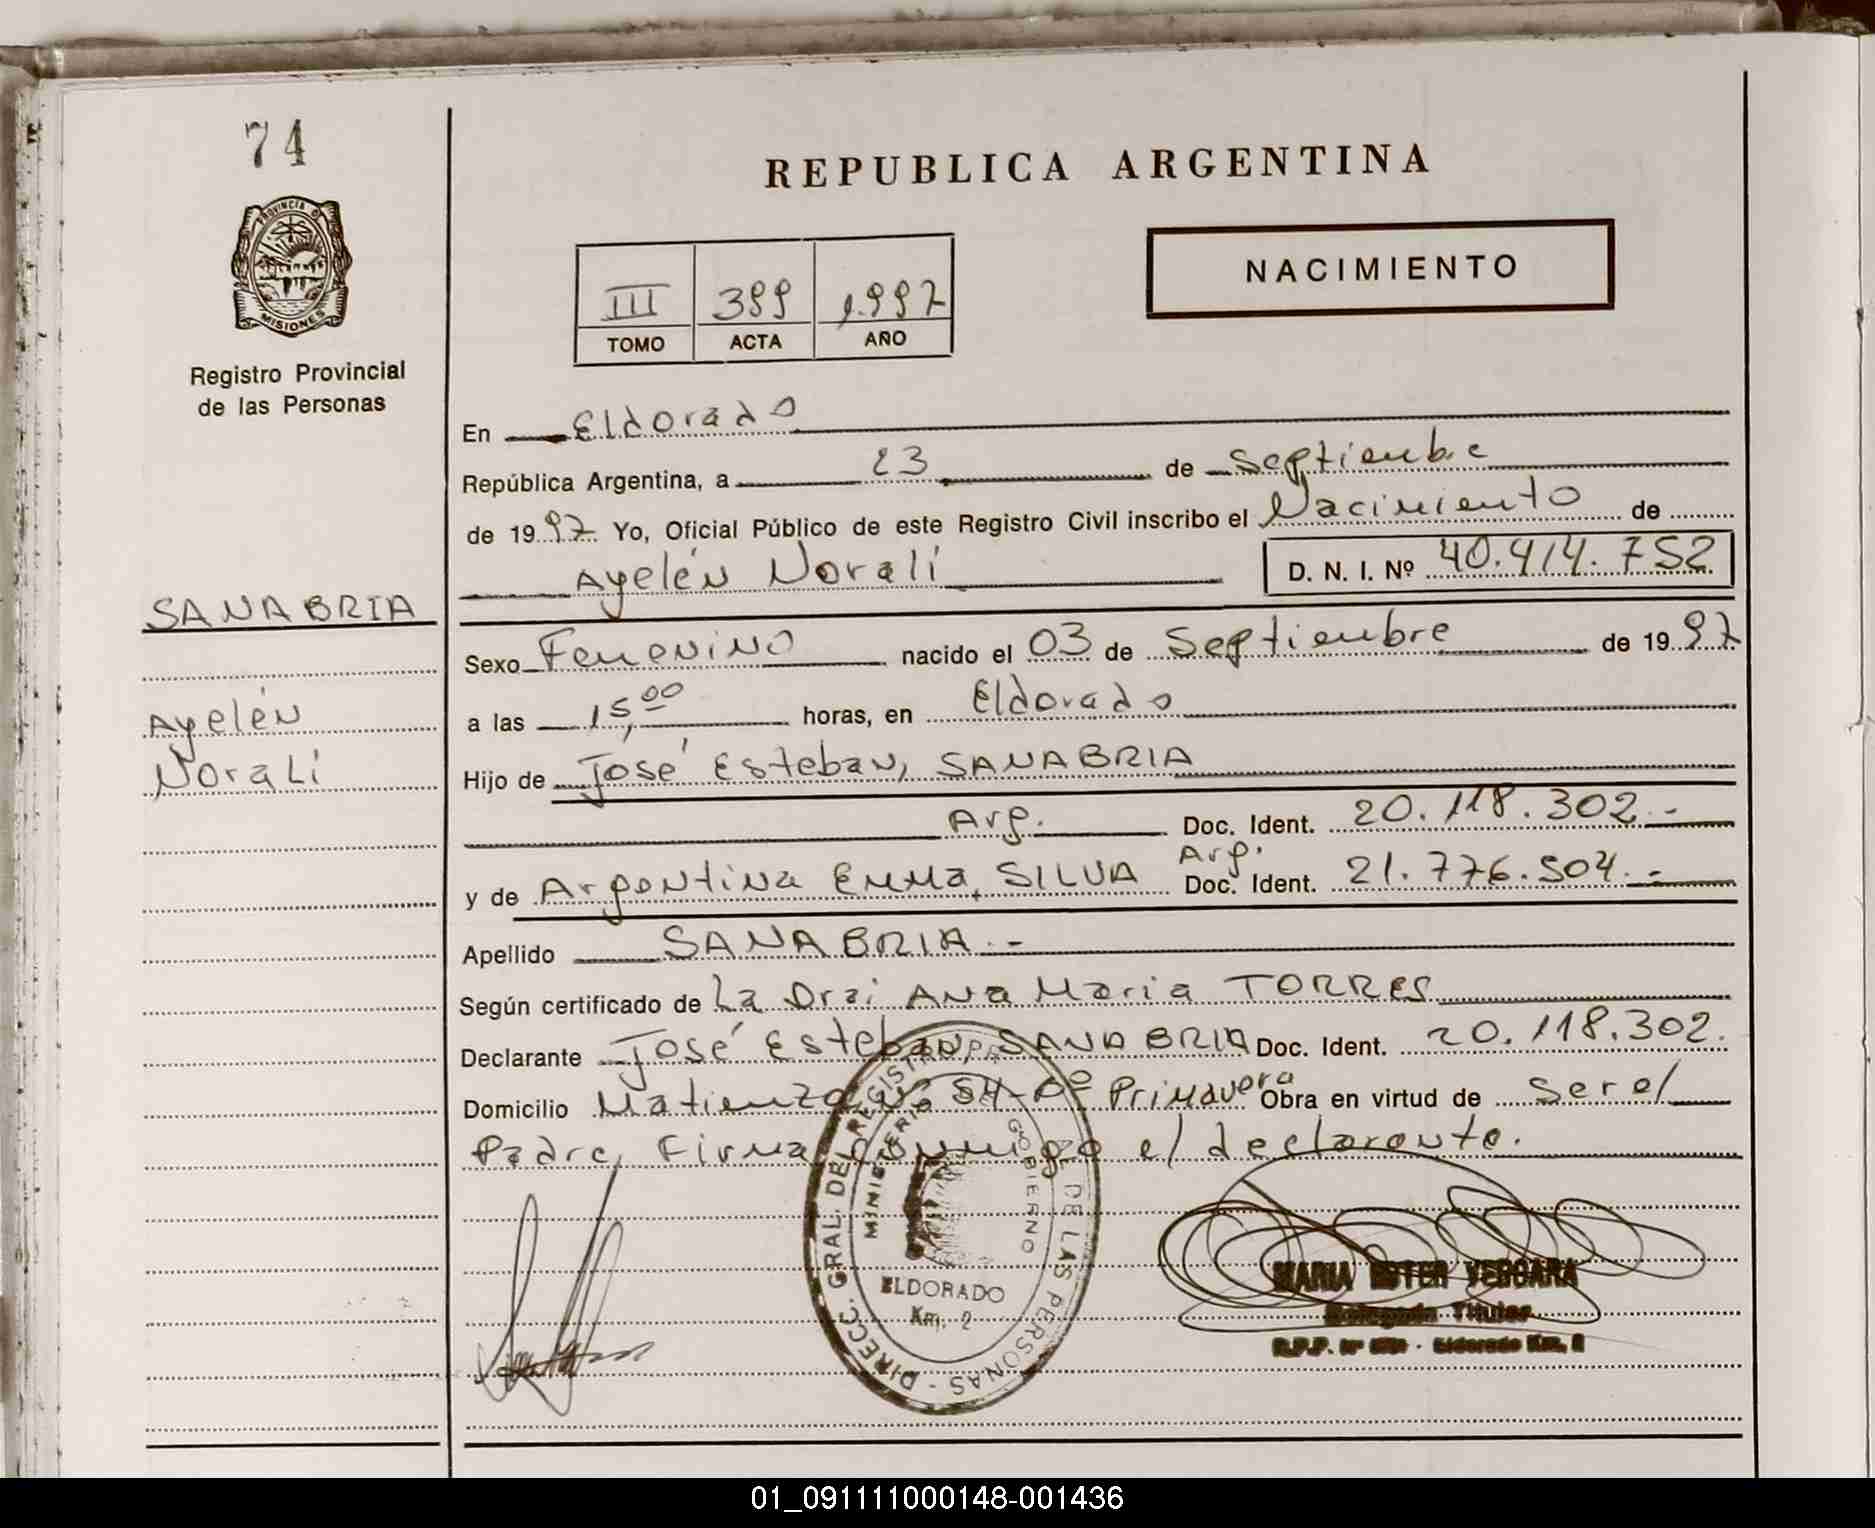 74
PROVINCIA D
MISIONES
Registro Provincial
de las Personas
SANABRIA
Ayelén
Noralí
REPUBLICA ARGENTINA
NACIMIENTO
III 399 1.997
TOMO ACTA AÑO
En Eldorado
República Argentina, a 23 de Septiembre
de 1997 Yo, Oficial Público de este Registro Civil inscribo el Nacimiento de
Ayelén Noralí D. N. I. Nº 40.414.752
Sexo Femenino nacido el 03 de Septiembre de 1997
a las 15,00 horas, en Eldorado
Hijo de José Esteban, SANABRIA
Arg. Doc. Ident. 20.118.302.-
Arg.
y de Argentina Emma, SILVA Doc. Ident. 21.776.504.-
Apellido SANABRIA.-
Según certificado de La Dra; Ana Maria TORRES
Declarante José Esteban, SANABRIA Doc. Ident. 20.118.302.
Domicilio Matienzo Nº 54-Bº Primavera Obra en virtud de ser el
Padre, Firma conmigo el declarante.
DIRECC. GRAL. DEL REGISTRO DE LAS PERSONAS
MINISTERIO GOBIERNO
ELDORADO
Km. 2
MARIA ESTER VERGARA
Delegada Titular
R.P.P. Nº Eldorado Km. 2
01_091111000148-001436